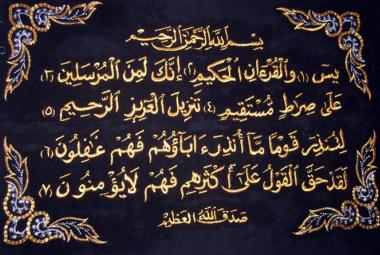 بسم الله الرحمن الرحيم
يس (١) والقرءان الحكيم (٢) إنك لمن المرسلين (٣)
على صراط مستقيم (٤) تنزيل العزيز الرحيم (٥)
لتنذر قوما ما أنذر ءاباؤهم فهم غفلون (٦)
لقد حق القول على أكثرهم فهم لا يؤمنون (٧)
صدق الله العظيم